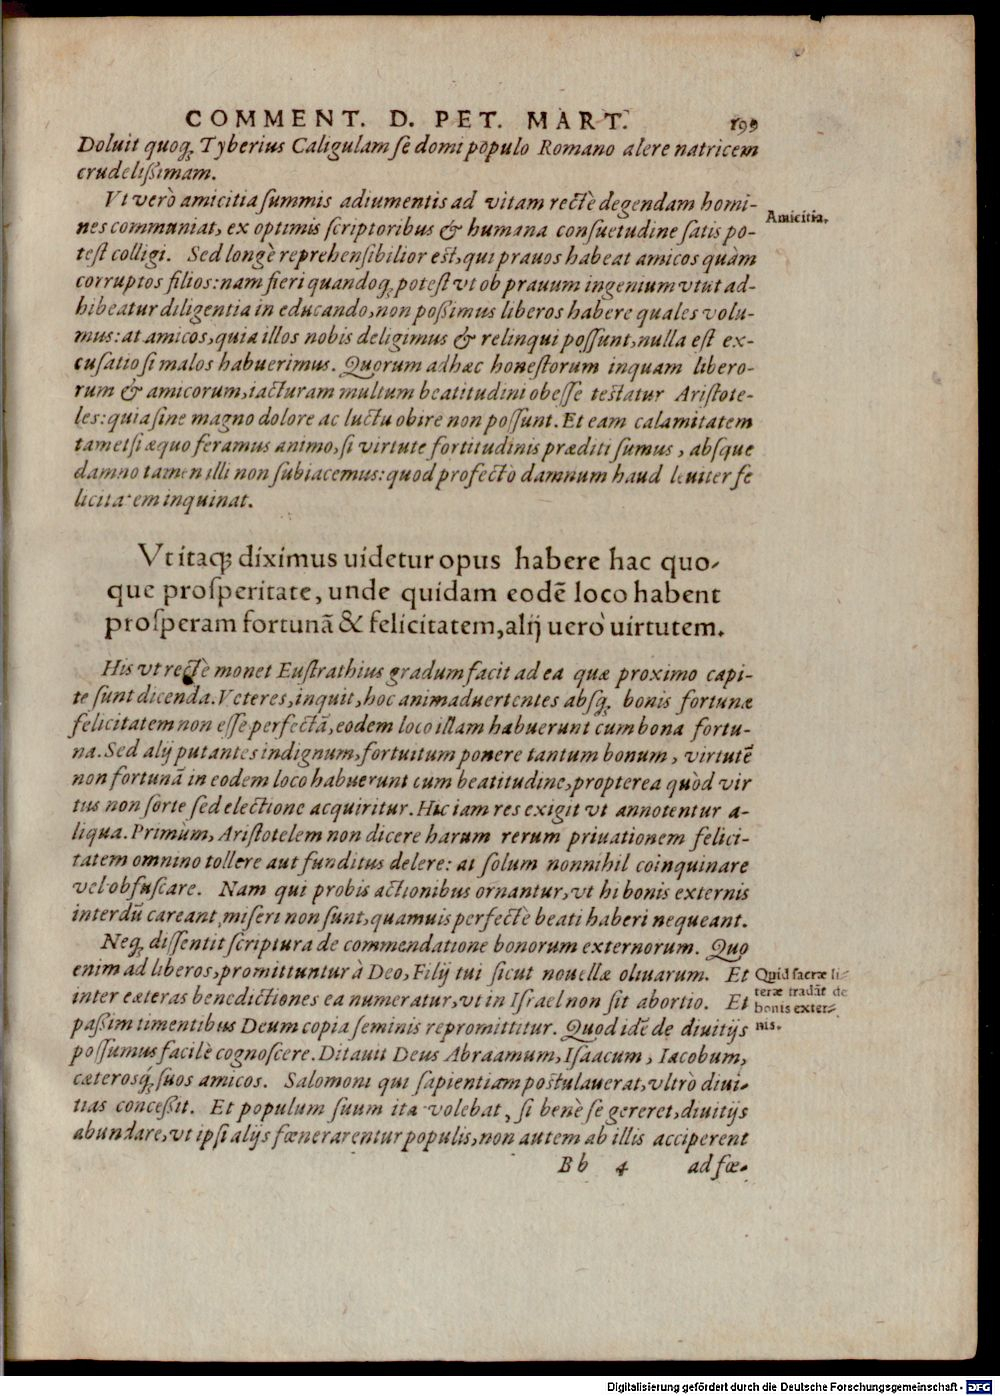 COMMENT. D. PET. MART. 199
Doluit quoq; Tyberius Caligulam se domi populo Romano alere natricem
crudelißimam.
Vt verò amicitia summis adiumentis ad vitam rectè degendam homi-
nes communiat, ex optimis scriptoribus & humana consuetudine satis po-
test colligi. Sed longè reprehensibilior est, qui prauos habeat amicos quàm
corruptos filios: nam fieri quandoq; potest vt ob prauum ingenium vtut ad-
hibeatur diligentia in educando, non poßimus liberos habere quales volu-
mus: at amicos, quia illos nobis deligimus & relinqui possunt, nulla est ex-
cusatio si malos habuerimus. Quorum adhæc honestorum inquam libero-
rum & amicorum, iacturam multum beatitudini obesse testatur Aristote-
les: quia sine magno dolore ac luctu obire non possunt. Et eam calamitatem
tametsi æquo feramus animo, si virtute fortitudinis præditi sumus, absque
damno tamen illi non subiacemus: quod profectò damnum haud leuiter fe
licitatem inquinat.
Amicitia.
Vt itaq; diximus uidetur opus habere hac quo-
que prosperitate, unde quidam eodē loco habent
prosperam fortunā & felicitatem, alij uerò uirtutem.
His vt rectè monet Eustrathius gradum facit ad ea quæ proximo capi-
te sunt dicenda. Veteres, inquit, hoc animaduertentes absq; bonis fortunæ
felicitatem non esse perfectā, eodem loco illam habuerunt cum bona fortu-
na. Sed alij putantes indignum, fortuitum ponere tantum bonum, virtutē
non fortunā in eodem loco habuerunt cum beatitudine, propterea quòd vir
tus non sorte sed electione acquiritur. Hic iam res exigit vt annotentur a-
liqua. Primùm, Aristotelem non dicere harum rerum priuationem felici-
tatem omnino tollere aut funditus delere: at solum nonnihil coinquinare
vel obfuscare. Nam qui probis actionibus ornantur, vt hi bonis externis
interdū careant, miseri non sunt, quamuis perfectè beati haberi nequeant.
Neq; dissentit scriptura de commendatione bonorum externorum. Quo
enim ad liberos, promittuntur à Deo, Filij tui sicut nouellæ oliuarum. Et
inter cæteras benedictiones ea numeratur, vt in Israel non sit abortio. Et
paßim timentibus Deum copia seminis repromittitur. Quod idē de diuitijs
possumus facilè cognoscere. Ditauit Deus Abraamum, Isaacum, Iacobum,
cæterosq́; suos amicos. Salomoni qui sapientiam postulauerat, vltrò diui-
tias conceßit. Et populum suum ita volebat, si benè se gereret, diuitijs
abundare, vt ipsi alijs fœnerarentur populis, non autem ab illis acciperent
Quid sacræ li-
teræ tradāt de
bonis exter-
nis.
Bb 4 ad fœ-
Digitalisierung gefördert durch die Deutsche Forschungsgemeinschaft - DFG